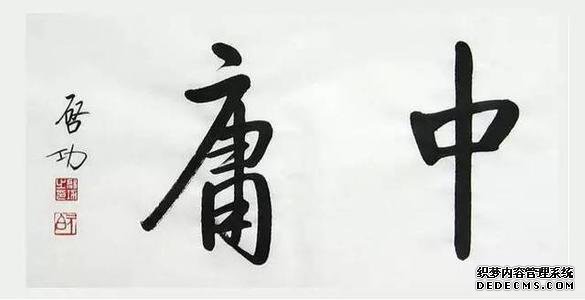 中庸
启功
织梦内容管理系统
DEDECMS.COM